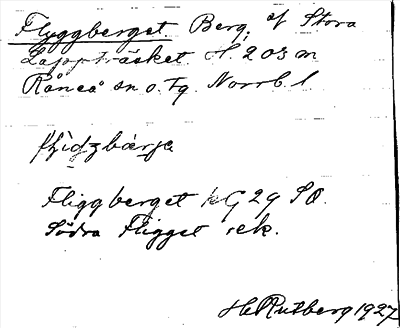 Flyggberget Berg. of Stora
Lappträsket. H. 203 m
Råneå sn o. tg Norrb. l
Fliggberget kG 29 SO.
Södra Fligget rek.
H Rutberg 1927